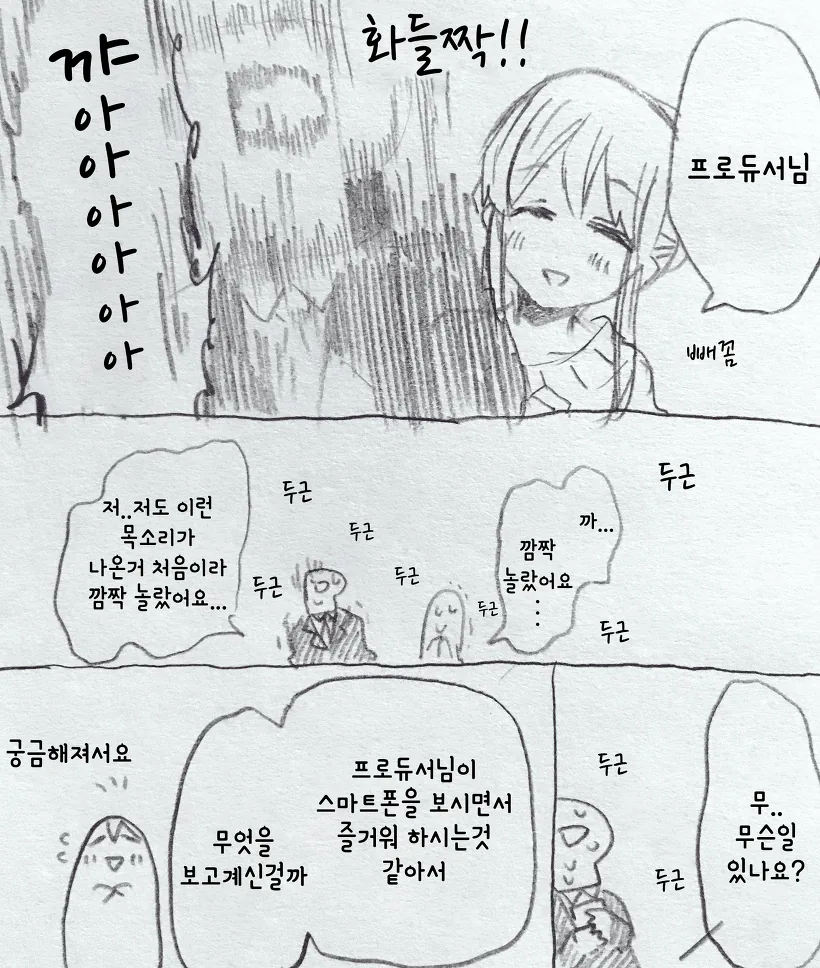 프로듀서님
빼꼼
화들짝!!
꺄
아
아
아
아
아
아
두근
까...
깜짝
놀랐어요
⋮
두근
두근
두근
두근
두근
두근
저..저도 이런
목소리가
나온거 처음이라
깜짝 놀랐어요...
무..
무슨일
있나요?
두근
두근
프로듀서님이
스마트폰을 보시면서
즐거워 하시는것
같아서
무엇을
보고계신걸까
궁금해져서요